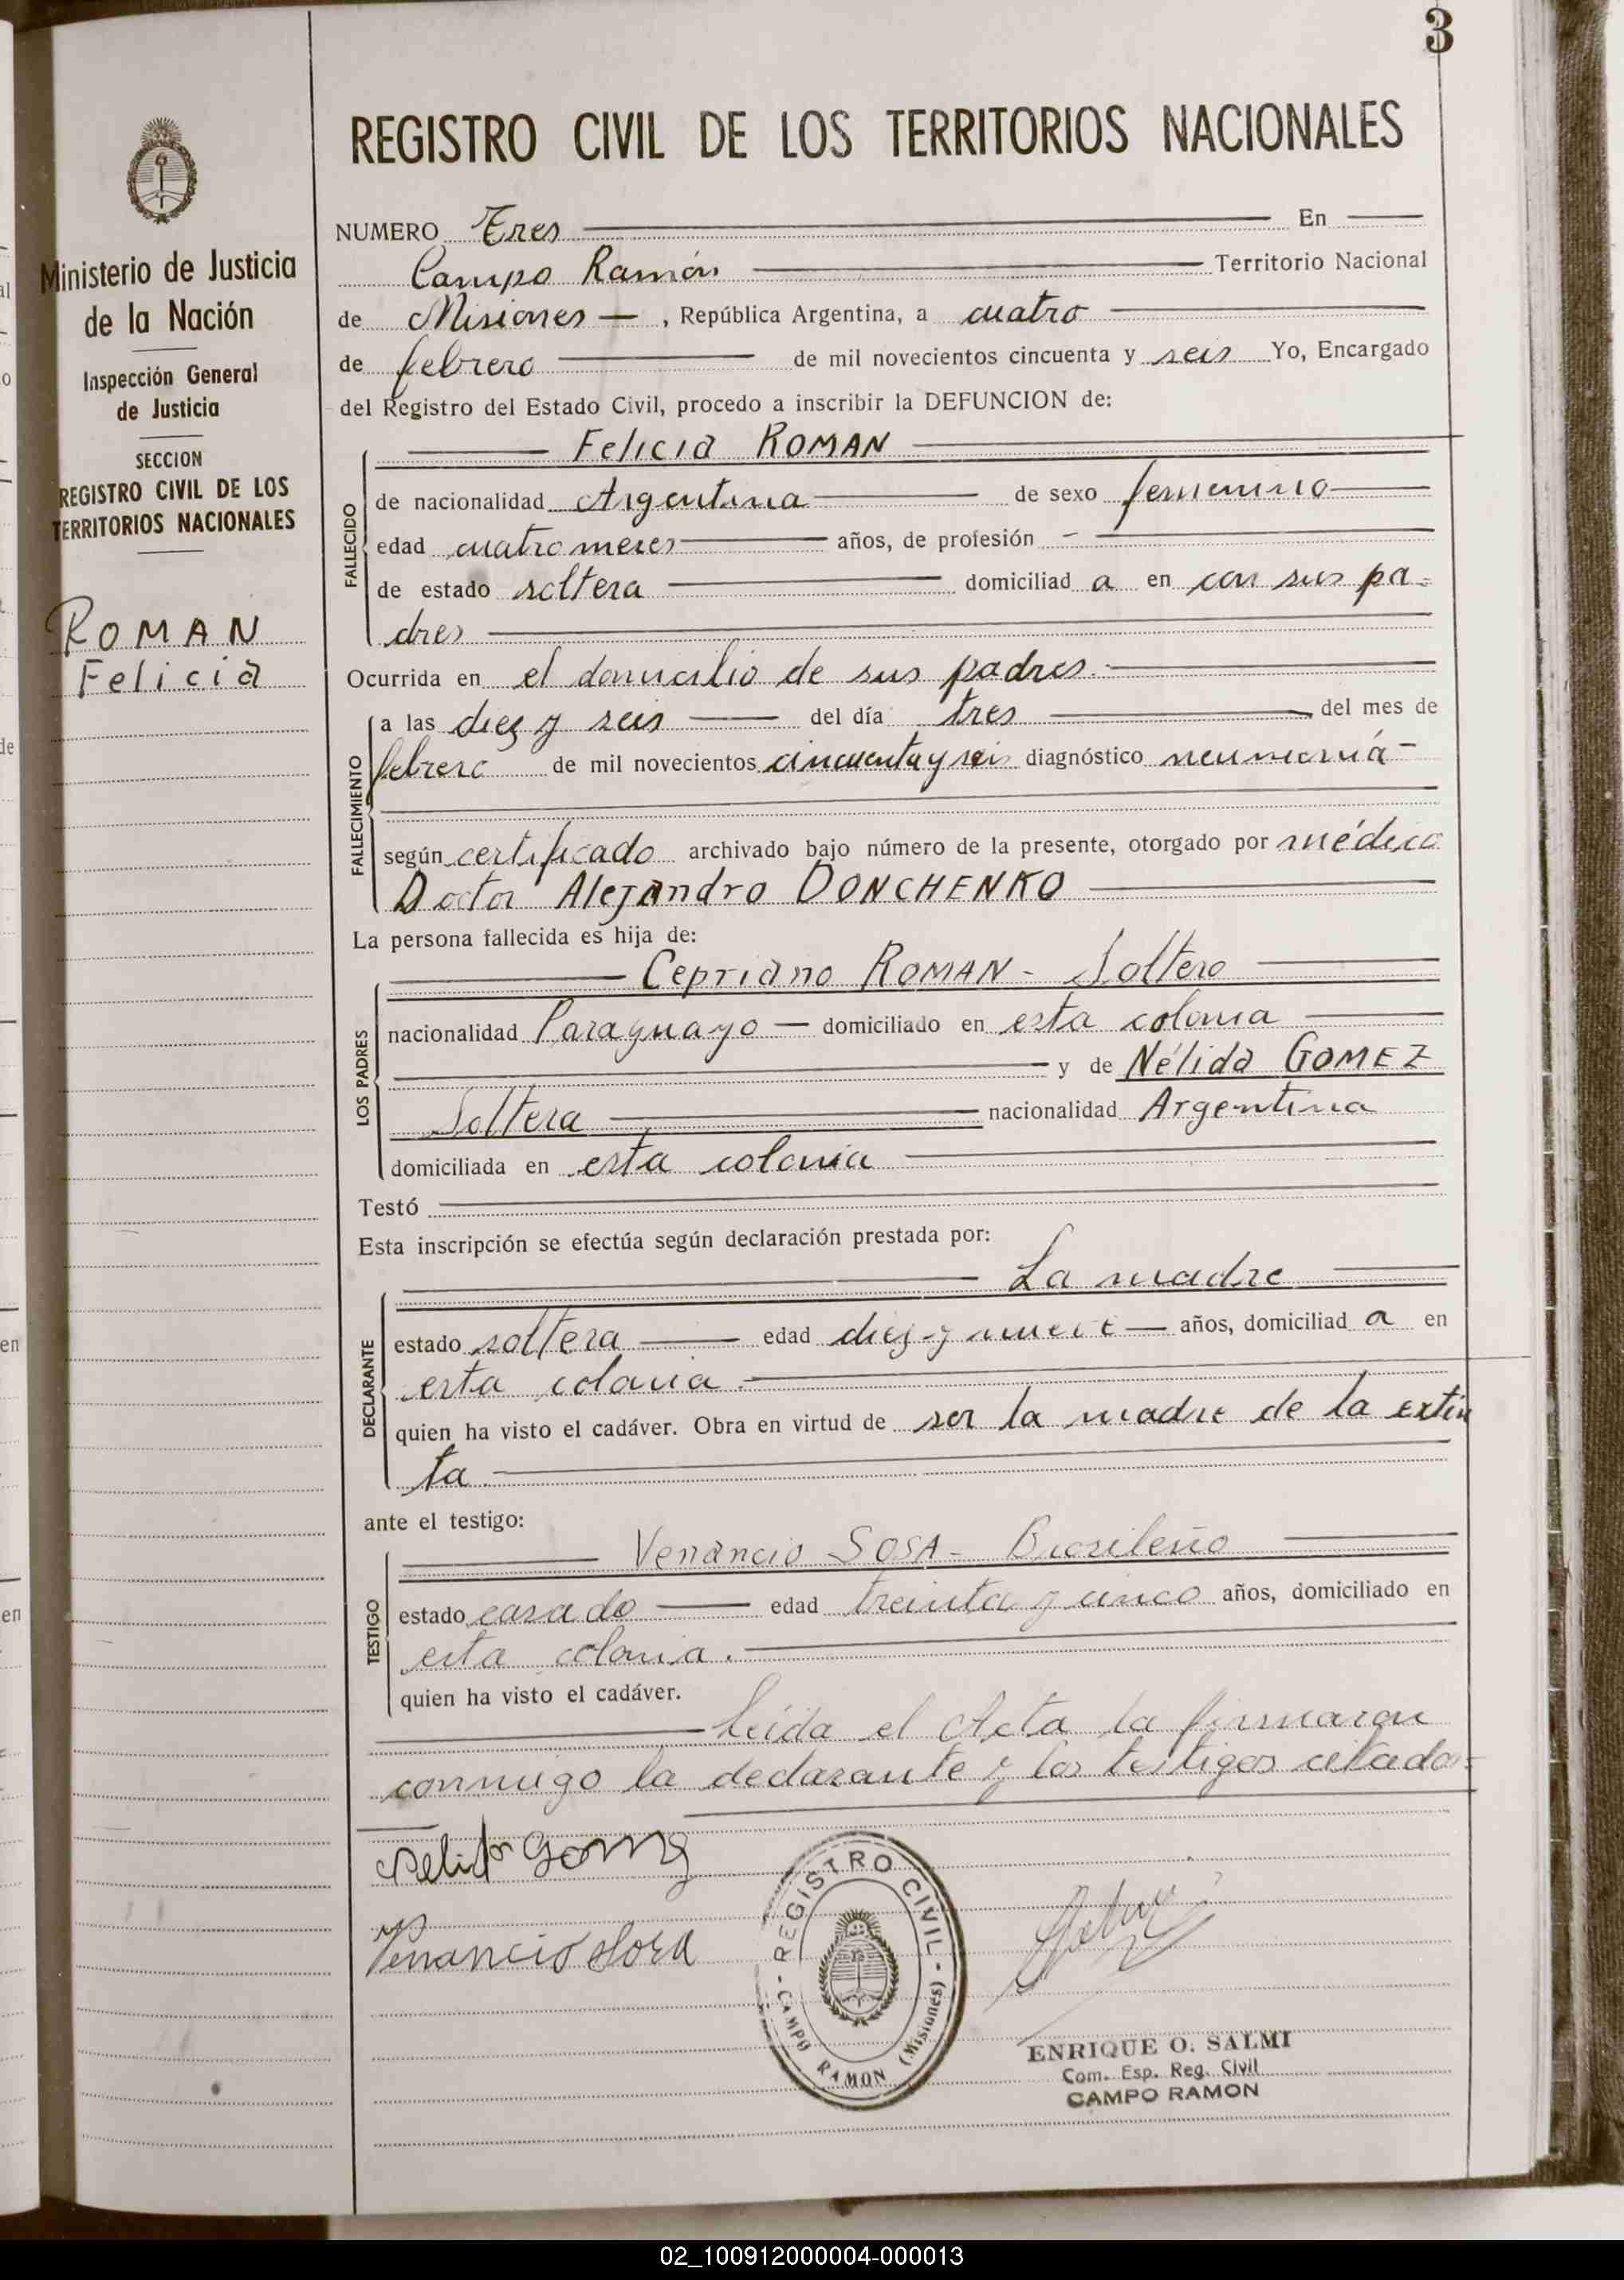 3
REGISTRO CIVIL DE LOS TERRITORIOS NACIONALES
Ministerio de Justicia
de la Nación
Inspección General
de Justicia
SECCION
REGISTRO CIVIL DE LOS
TERRITORIOS NACIONALES
ROMAN
Felicia
NUMERO Tres En
Campo Ramón Territorio Nacional
de Misiones, República Argentina, a cuatro
de febrero de mil novecientos cincuenta y seis Yo, Encargado
del Registro del Estado Civil, procedo a inscribir la DEFUNCION de:
FALLECIDO
Felicia ROMAN
de nacionalidad Argentina de sexo femenino
edad cuatro meses años, de profesión -
de estado soltera domiciliad a en con sus pa=
dres
Ocurrida en el domicilio de sus padres.
FALLECIMIENTO
a las diez y seis del día tres del mes de
febrero de mil novecientos cincuenta y seis diagnóstico neumonía
según certificado archivado bajo número de la presente, otorgado por médico
Doctor Alejandro DONCHENKO
La persona fallecida es hija de:
LOS PADRES
Cepriano ROMAN - Soltero
nacionalidad Paraguayo domiciliado en esta colonia
y de Nélida GOMEZ
Soltera nacionalidad Argentina
domiciliada en esta colonia
Testó
Esta inscripción se efectúa según declaración prestada por:
DECLARANTE
La madre
estado soltera edad diez y nueve años, domiciliad a en
esta colonia.
quien ha visto el cadáver. Obra en virtud de ser la madre de la extin
ta.
ante el testigo:
TESTIGO
Venancio SOSA - Brasileño
estado casado edad treinta y cinco años, domiciliado en
esta colonia.
quien ha visto el cadáver.
Leída el Acta la firmaron
conmigo la declarante y los testigos citados=
Nelida Gomez
Venancio Sosa
REGISTRO CIVIL - CAMPO RAMON (Misiones)
ENRIQUE O. SALMI
Com. Esp. Reg. Civil
CAMPO RAMON
02_100912000004-000013